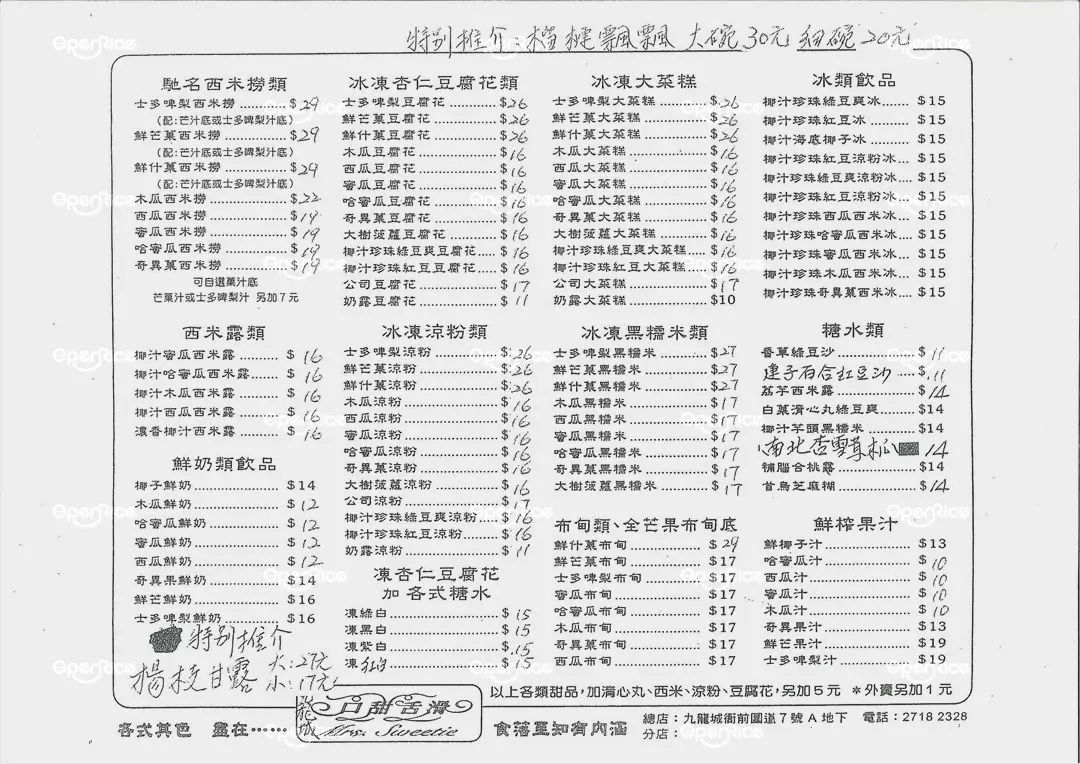 特别推介：檔槤飄飄 大碗30元 細碗20元
馳名西米撈類
士多啤梨西米撈 .......... $29
(配:芒汁底或士多啤梨汁底)
鮮芒菓西米撈 .......... $29
(配:芒汁底或士多啤梨汁底)
鮮什菓西米撈 .......... $29
(配:芒汁底或士多啤梨汁底)
木瓜西米撈 .......... $22
西瓜西米撈 .......... $19
蜜瓜西米撈 .......... $19
哈蜜瓜西米撈 .......... $19
奇異菓西米撈 .......... $19
可自選菓汁底
芒菓汁或士多啤梨汁 另加7元
冰凍杏仁豆腐花類
士多啤梨豆腐花 .......... $26
鮮芒菓豆腐花 .......... $26
鮮什菓豆腐花 .......... $26
木瓜豆腐花 .......... $16
西瓜豆腐花 .......... $16
蜜瓜豆腐花 .......... $16
哈蜜瓜豆腐花 .......... $16
奇異菓豆腐花 .......... $16
大樹菠蘿豆腐花 .......... $16
椰汁珍珠綠豆爽豆腐花 .... $16
椰汁珍珠紅豆豆腐花 .... $16
公司豆腐花 .......... $17
奶露豆腐花 .......... $11
冰凍大菜糕
士多啤梨大菜糕 .......... $26
鮮芒菓大菜糕 .......... $26
鮮什菓大菜糕 .......... $26
木瓜大菜糕 .......... $16
西瓜大菜糕 .......... $16
蜜瓜大菜糕 .......... $16
哈蜜瓜大菜糕 .......... $16
奇異菓大菜糕 .......... $16
大樹菠蘿大菜糕 .......... $16
椰汁珍珠綠豆爽大菜糕 .... $16
椰汁珍珠紅豆大菜糕 .... $16
公司大菜糕 .......... $17
奶露大菜糕 .......... $10
冰類飲品
椰汁珍珠綠豆爽冰 ...... $15
椰汁珍珠紅豆冰 ...... $15
椰汁海底椰子冰 ...... $15
椰汁珍珠紅豆涼粉冰 ... $15
椰汁珍珠綠豆爽涼粉冰 ... $15
椰汁珍珠紅豆涼粉冰 ... $15
椰汁珍珠西瓜西米冰 ... $15
椰汁珍珠哈蜜瓜西米冰 ... $15
椰汁珍珠蜜瓜西米冰 ... $15
椰汁珍珠木瓜西米冰 ... $15
椰汁珍珠奇異菓西米冰 ... $15
西米露類
椰汁蜜瓜西米露 .......... $16
椰汁哈蜜瓜西米露 ...... $16
椰汁木瓜西米露 .......... $16
椰汁西瓜西米露 .......... $16
濃香椰汁西米露 .......... $16
鮮奶類飲品
椰子鮮奶 .......... $14
木瓜鮮奶 .......... $12
哈蜜瓜鮮奶 .......... $12
蜜瓜鮮奶 .......... $12
西瓜鮮奶 .......... $12
奇異果鮮奶 .......... $14
鮮芒鮮奶 .......... $16
士多啤梨鮮奶 .......... $16
特别推介
楊枝甘露 大:27元
小:17元
冰凍涼粉類
士多啤梨涼粉 .......... $26
鮮芒菓涼粉 .......... $26
鮮什菓涼粉 .......... $26
木瓜涼粉 .......... $16
西瓜涼粉 .......... $16
蜜瓜涼粉 .......... $16
哈蜜瓜涼粉 .......... $16
奇異菓涼粉 .......... $16
大樹菠蘿涼粉 .......... $16
公司涼粉 .......... $17
椰汁珍珠綠豆爽涼粉 .... $16
椰汁珍珠紅豆涼粉 .... $16
奶露涼粉 .......... $11
凍杏仁豆腐花
加各式糖水
凍綠白 .......... $15
凍黑白 .......... $15
凍紫白 .......... $15
凍紅白 .......... $15
冰凍黑糯米類
士多啤梨黑糯米 .......... $27
鮮芒菓黑糯米 .......... $27
鮮什菓黑糯米 .......... $27
木瓜黑糯米 .......... $17
西瓜黑糯米 .......... $17
蜜瓜黑糯米 .......... $17
哈蜜瓜黑糯米 .......... $17
奇異菓黑糯米 .......... $17
大樹菠蘿黑糯米 .......... $17
布甸類、全芒果布甸底
鮮什菓布甸 .......... $29
鮮芒菓布甸 .......... $17
士多啤梨布甸 .......... $17
蜜瓜布甸 .......... $17
哈蜜瓜布甸 .......... $17
木瓜布甸 .......... $17
奇異菓布甸 .......... $17
西瓜布甸 .......... $17
糖水類
香草綠豆沙 .......... $11
連子百合紅豆沙 ..... $11
荔芋西米露 .......... $14
白菓清心丸綠豆爽 ...... $14
椰汁芋頭黑糯米 ...... $14
南北杏雪耳木瓜 14
補腦合桃露 .......... $14
首烏芝麻糊 .......... $14
鮮榨果汁
鮮椰子汁 .......... $13
哈蜜瓜汁 .......... $10
西瓜汁 .......... $10
蜜瓜汁 .......... $10
木瓜汁 .......... $10
奇異果汁 .......... $13
鮮芒果汁 .......... $19
士多啤梨汁 .......... $19
以上各類甜品，加清心丸、西米、涼粉、豆腐花，另加5元 *外賣另加1元
各式其色 盡在‥‥‥
龍城
口甜舌滑
Mrs. Sweetie
食落至知有內涵
總店：九龍城衙前圍道7號A地下 電話：2718 2328
分店：